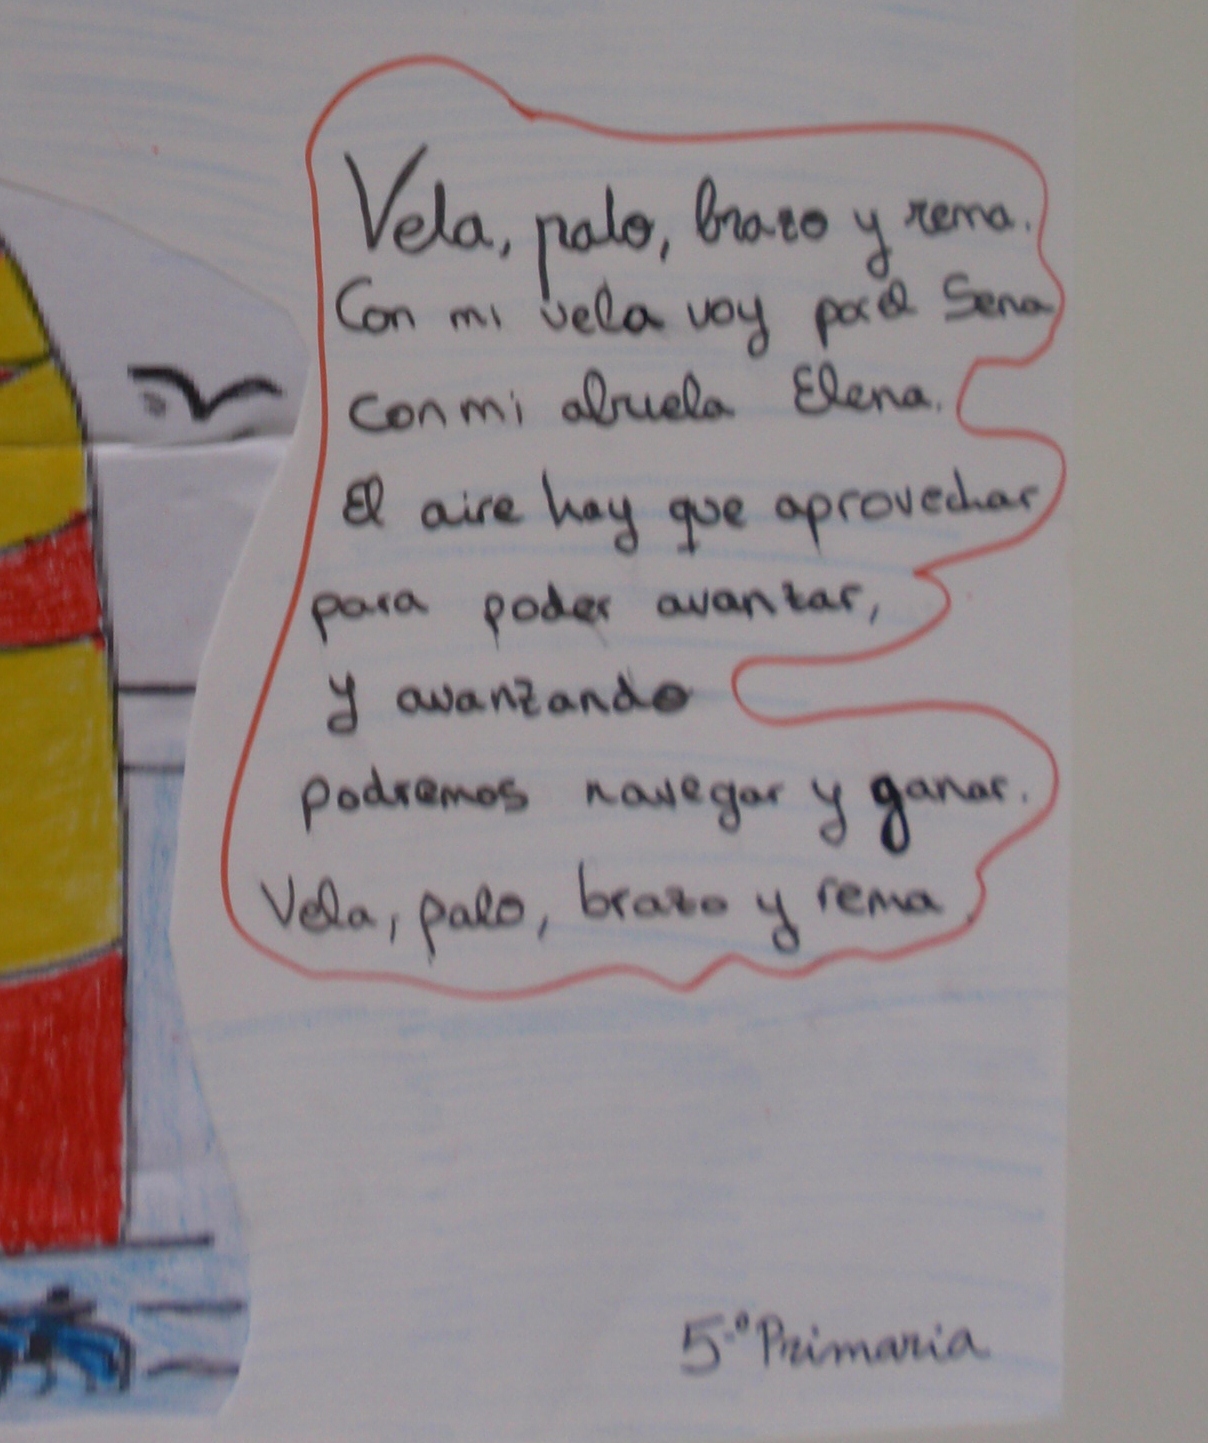 Vela, palo, brazo y rema.
Con mi vela voy por el Sena
con mi abuela Elena.
El aire hay que aprovechar
para poder avanzar,
y avanzando
podremos navegar y ganar.
Vela, palo, brazo y rema.
5.º Primaria